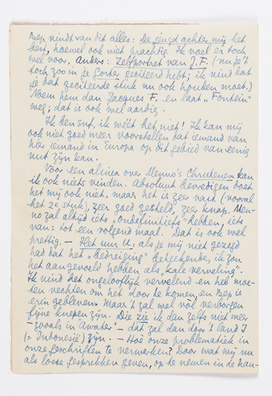 Bep vindt van dit alles: De eeuwd achter mij het
best, hoewel ook niet prachtig. Ik voel er toch
wel voor. Anders: Zelfportret van J.F. (mis't
toch zoo in je Gorter geciteerd hebt; ik vind dat
je dat geciteerde stuk nu ook houden moet.)
Noem hem dan Jacques F. en laat „Fontein"
weg; dat is ook wel aardig.
Ik ken Suf. ik wéét het niet! Ik kan mij
ook niet goed meer voorstellen dat iemand van
hier iemand in Europa op dit gebied van eenig
nut zijn kan.
Voor een alinea over Menno's Christenen kan
ik ook niets vinden. Absoluut bevredigen doet
het mij ook niet, maar het is zeer raak (vooral
het 2e stuk), zeer goed gesteld, zeer knap. Men-
no zal altijd iets „onbetrouwbaars" hebben, iets
van: tot een volgend maal. Dat is ook wel
prettig. — Het één is, als je mij niet gezegd
had dat het „Bedreiging" beteekende, ik zou
het aangevoeld hebben als „kale verveling".
Ik vind het ongelooflijk vervelend en heb moe-
ten vechten om het door te komen, en Bep is
erin gebleven. Maar 't zal wel vol verborgen
fijne knepen zijn. Die zie ik dan zelfs niet meer
— zooals in Awater — dat zal dan door 't land I
(= Indonesië) zijn. — Hoe onze problematiek in
onze geschriften te verwerken? Door wat mij nu
als losse gesprekken geven, op te nemen in de han-